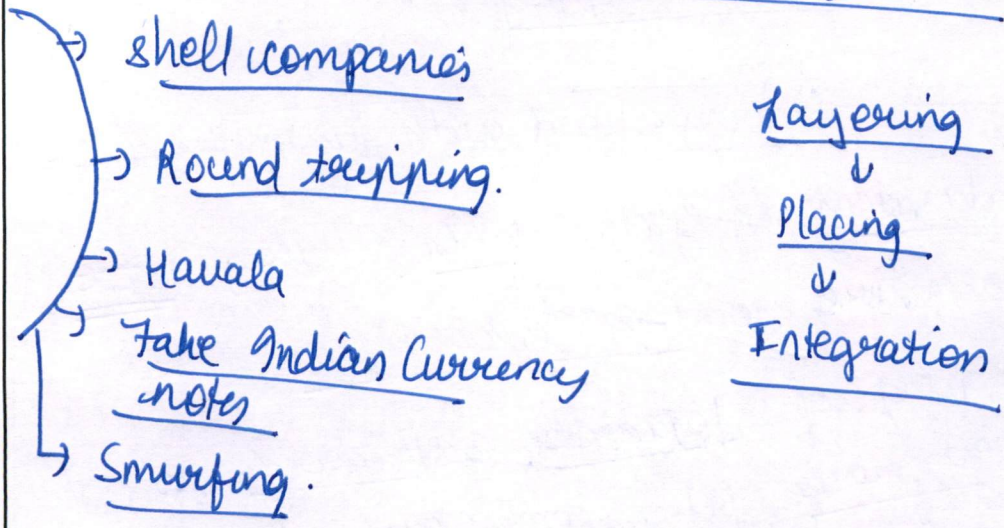 Shell companies
Round tripping.
Hawala
Fake Indian Currency
notes
Smurfing.
Layering
↓
Placing
↓
Integration